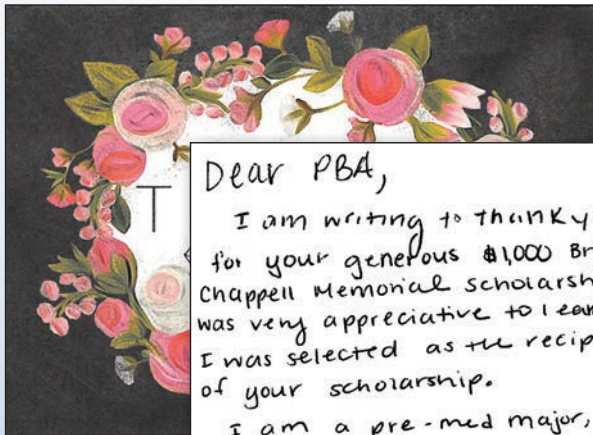 T
Dear PBA,
I am writing to thank y
for your generous $1,000 Br
Chappell Memorial scholarsh
was very appreciative to lear
I was selected as the recip
of your scholarship.
I am a pre-med major,